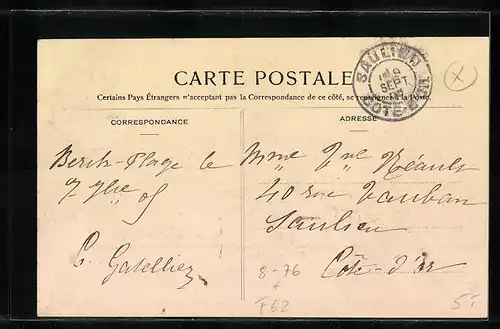 CARTE POSTALE
Certains Pays Étrangers n'acceptant pas la Correspondance de ce côté, se renseigner à la Poste.
CORRESPONDANCE
ADRESSE
SAULIEU
SEPT
COTE-D'OR
Berck-Plage le
7 7bre 05
G. Gatelliez
Mme Vve
40 rue Vauban
Saulieu
Côte-d'or
8-76
+
F62
5F
X